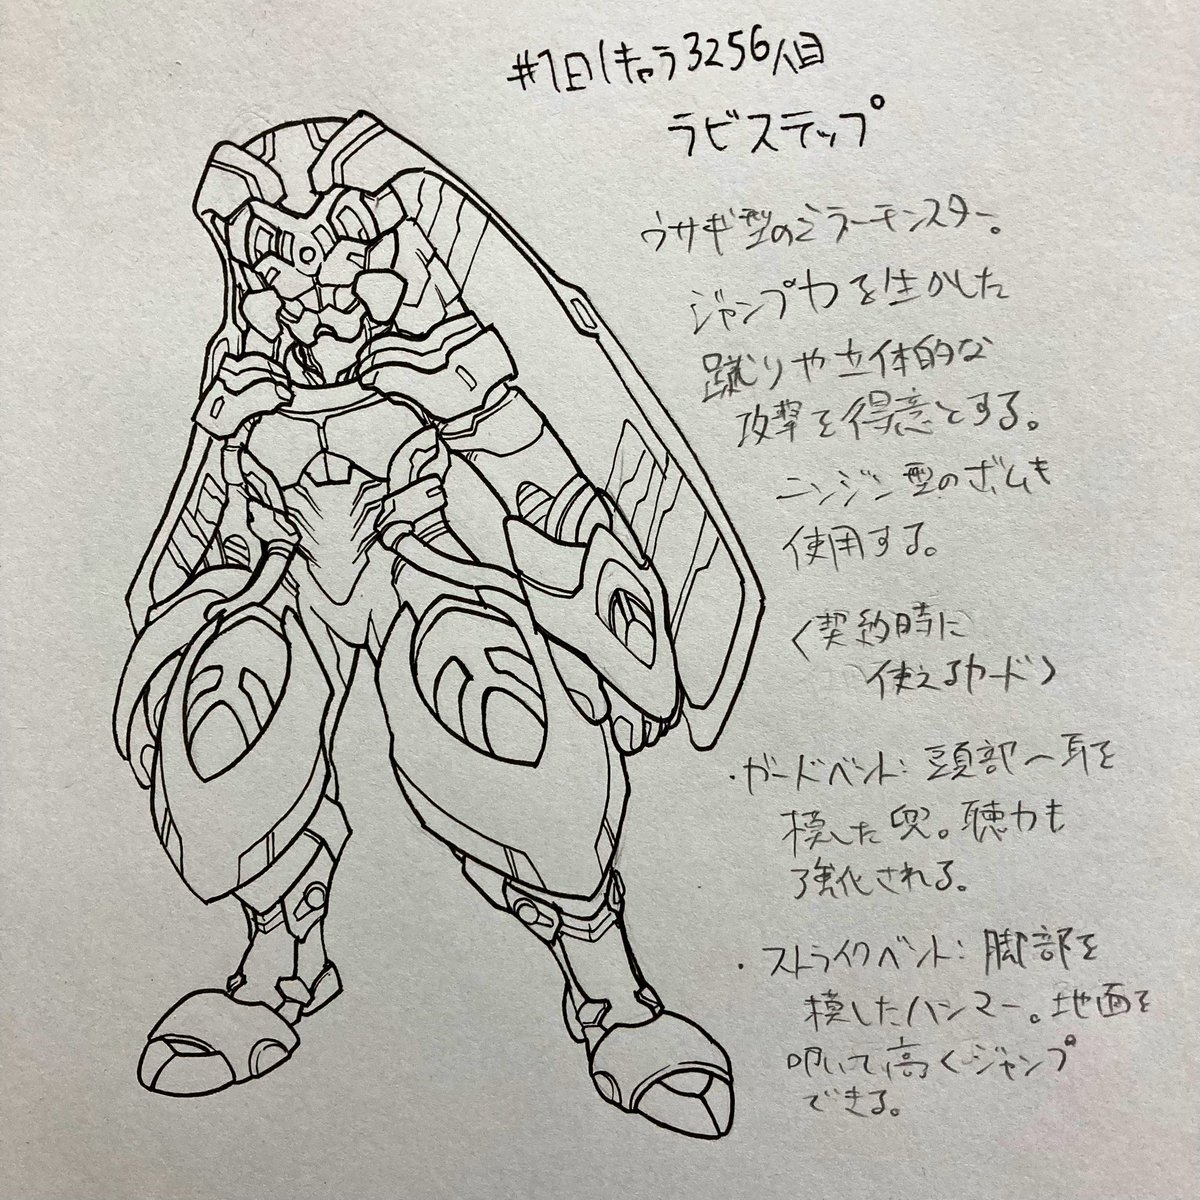 #1日1キャラ3256人目
ラビステップ
ウサギ型のミラーモンスター。
ジャンプ力を生かした
蹴りや立体的な
攻撃を得意とする。
ニンジン型のボムも
使用する。
〈契約時に
使えるカード〉
・ガードベント:頭部〜耳を
模した兜。聴力も
強化される。
・ストライクベント:脚部を
模したハンマー。地面を
叩いて高くジャンプ
できる。